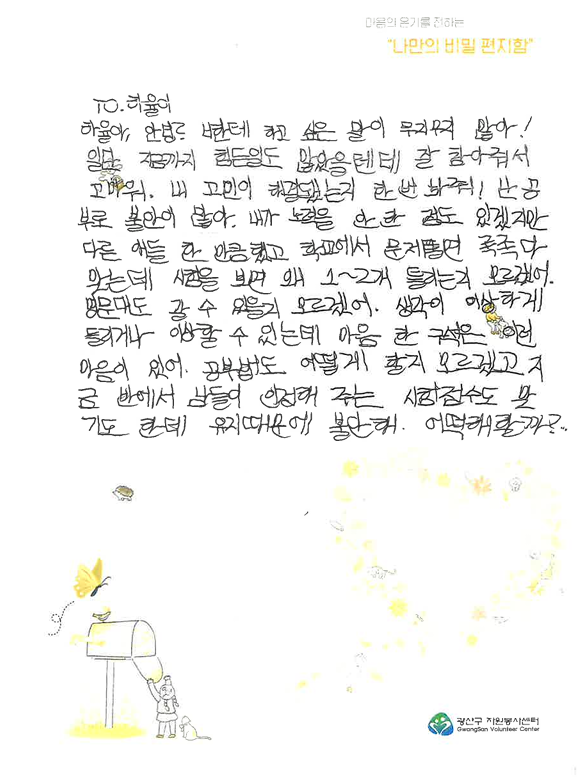 마음의 온기를 전하는
"나만의 비밀 편지함"
TO. 하율이
하율아, 안녕? 너한테 하고 싶은 말이 무지무지 많아!
일단, 지금까지 힘든일도 많았을텐데 잘 참아줘서
고마워. 내 고민이 해결됐는지 한번 봐줘! 난 공
부로 불안이 많아. 내가 노력을 안 한 점도 있겠지만
다른 애들 한 만큼 했고 학교에서 문제풀면 족족 다
맞는데 시험을 보면 왜 1~2개 틀리는지 모르겠어.
명문대도 갈 수 있을지 모르겠어. 생각이 이상하게
들리거나 이상할 수 있는데 마음 한 구석은 이런
마음이 있어. 공부법도 어떻게 할지 모르겠고 지
금 반에서 남들이 인정해 주는 시험점수도 맞
기도 한데 유지때문에 불안해. 어떡해야할까?..
광산구 자원봉사센터
GwangSan Volunteer Center